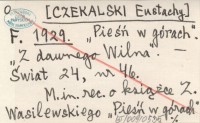 [CZEKALSKI Eustachy]
F. 1929. „Pieśń w górach".
„Z dawnego Wilna". —
Świat 24, nr 46.
M.in. rec. o książce Z.
Wasilewskiego „Pieśń w górach"